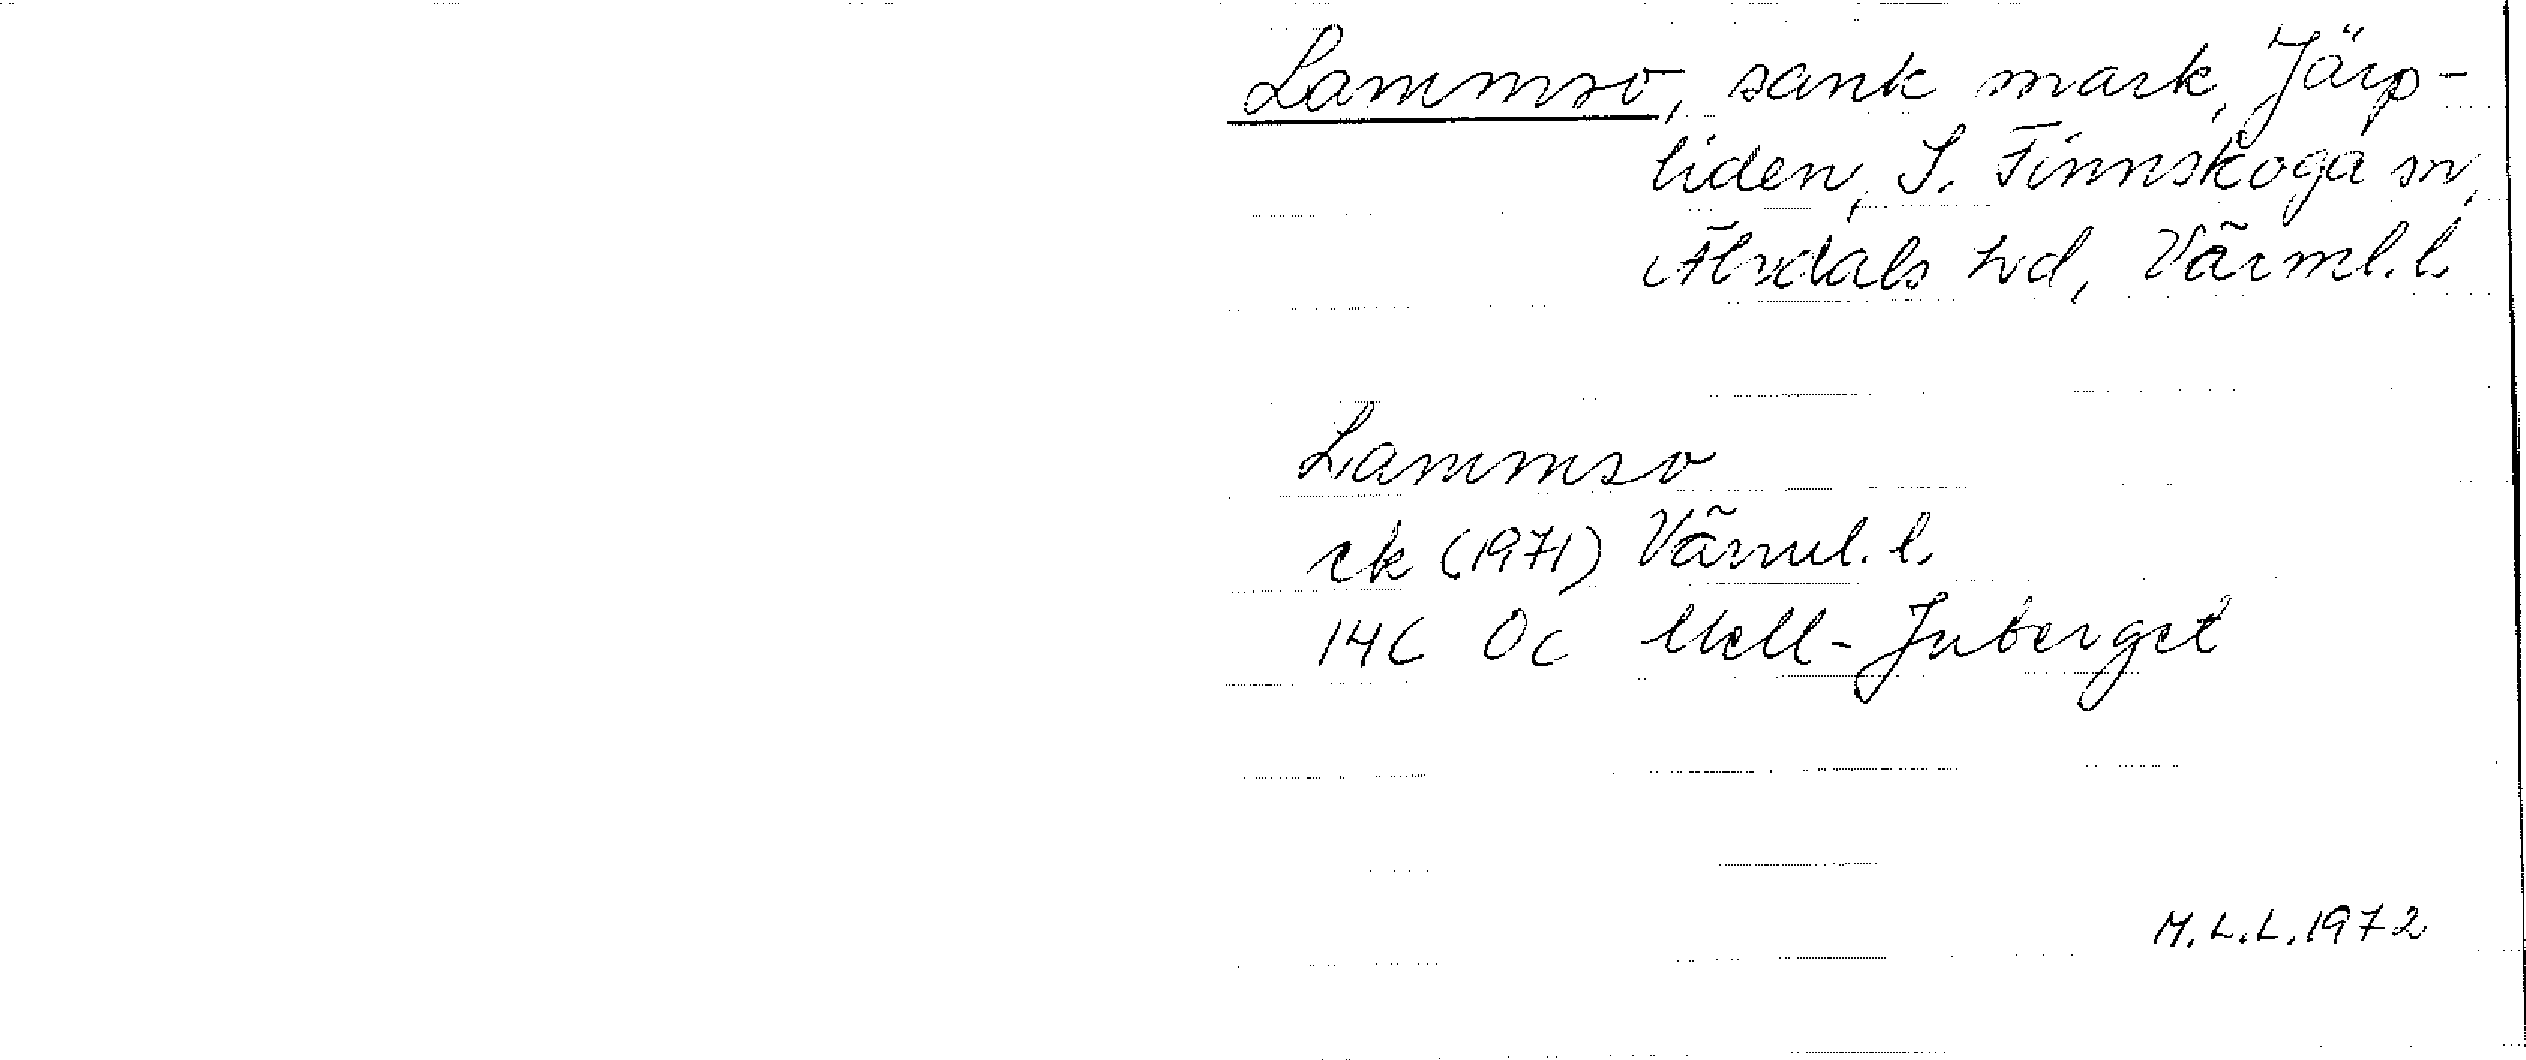 Lammso, sank mark, Järp-
liden, S. Finnskoga sn,
Älvdals hd, Värml. l.
Lammso
ek (1971) Värml. l.
14C 0c Mell-Juberget
M.L.L. 1972